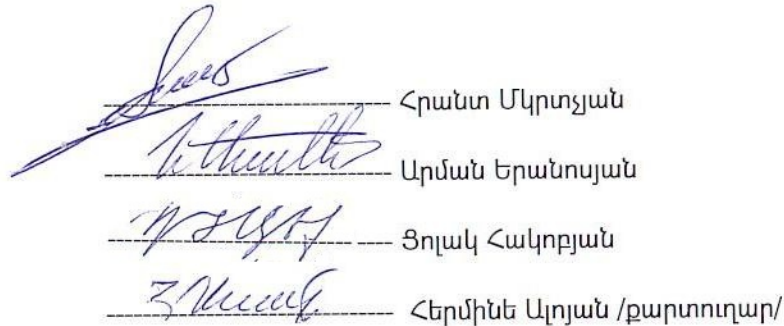 Հրանտ Մկրտչյան
Արման Երանոսյան
Ցոլակ Հակոբյան
Հերմինե Ալոյան /քարտուղար/